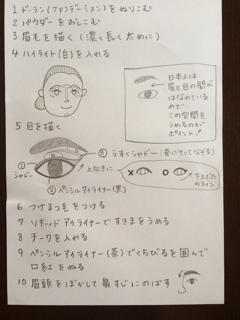 1 ドーラン(ファンデーション)をぬりこむ
2 パウダーをおしこむ
3 眉毛を描く(濃く長く太めに)
4 ハイライト(白)を入れる
日本人は
眉と目の間が
はなれている
ので
この空間を
うめるのが
ポイント!
5 目を描く
③うすくシャドー(骨にそってなぞる)
①
シャドー
上向きに
②ペンシルアイライナー(黒)
× ○
下まぶた
のライン
6 つけまつ毛をつける
7 リキッドアイライナーですきまをうめる
8 チークを入れる
9 ペンシルアイライナー(茶)でくちびるを囲んで
口紅をぬる
10 眉頭をぼかして鼻すじにのばす